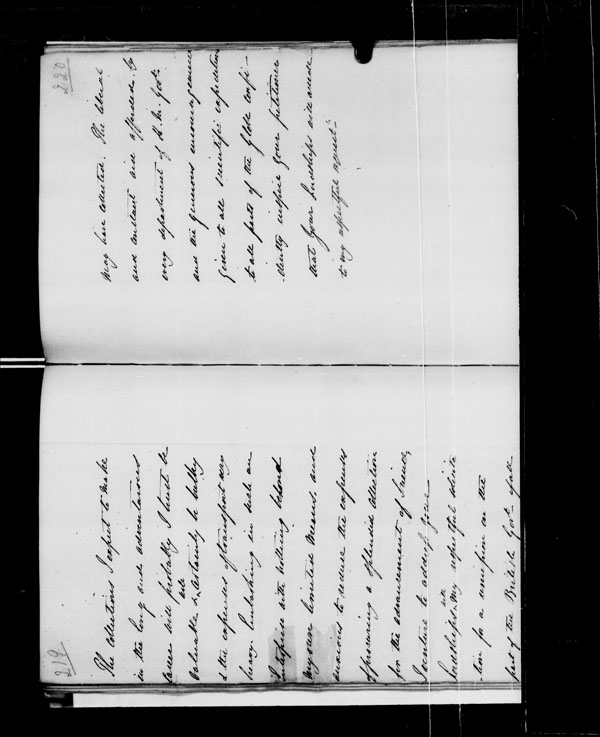 219
The Collections I expect to make
in the long and adventurous
career will probably I trust be
valuable & will certainly be bulky
& the expenses of transport very
heavy. Embarking in such an
Enterprise with nothing beyond
my own limited Means, and
anxious to reduce the expenses
of procuring a splendid Collection
for the advancement of Science,
I venture to address your
Lordships with my respectful solicita
tion for a remission on the
part of the British Govt. upon
220
may have collected. The liberal
and constant aid afforded by
every department of H. M. Govt.
and the generous encouragement
given to all scientific expeditions
to all parts of the Globe confi-
dently inspire your petitioner
that your Lordships will accede
to my respectful request.